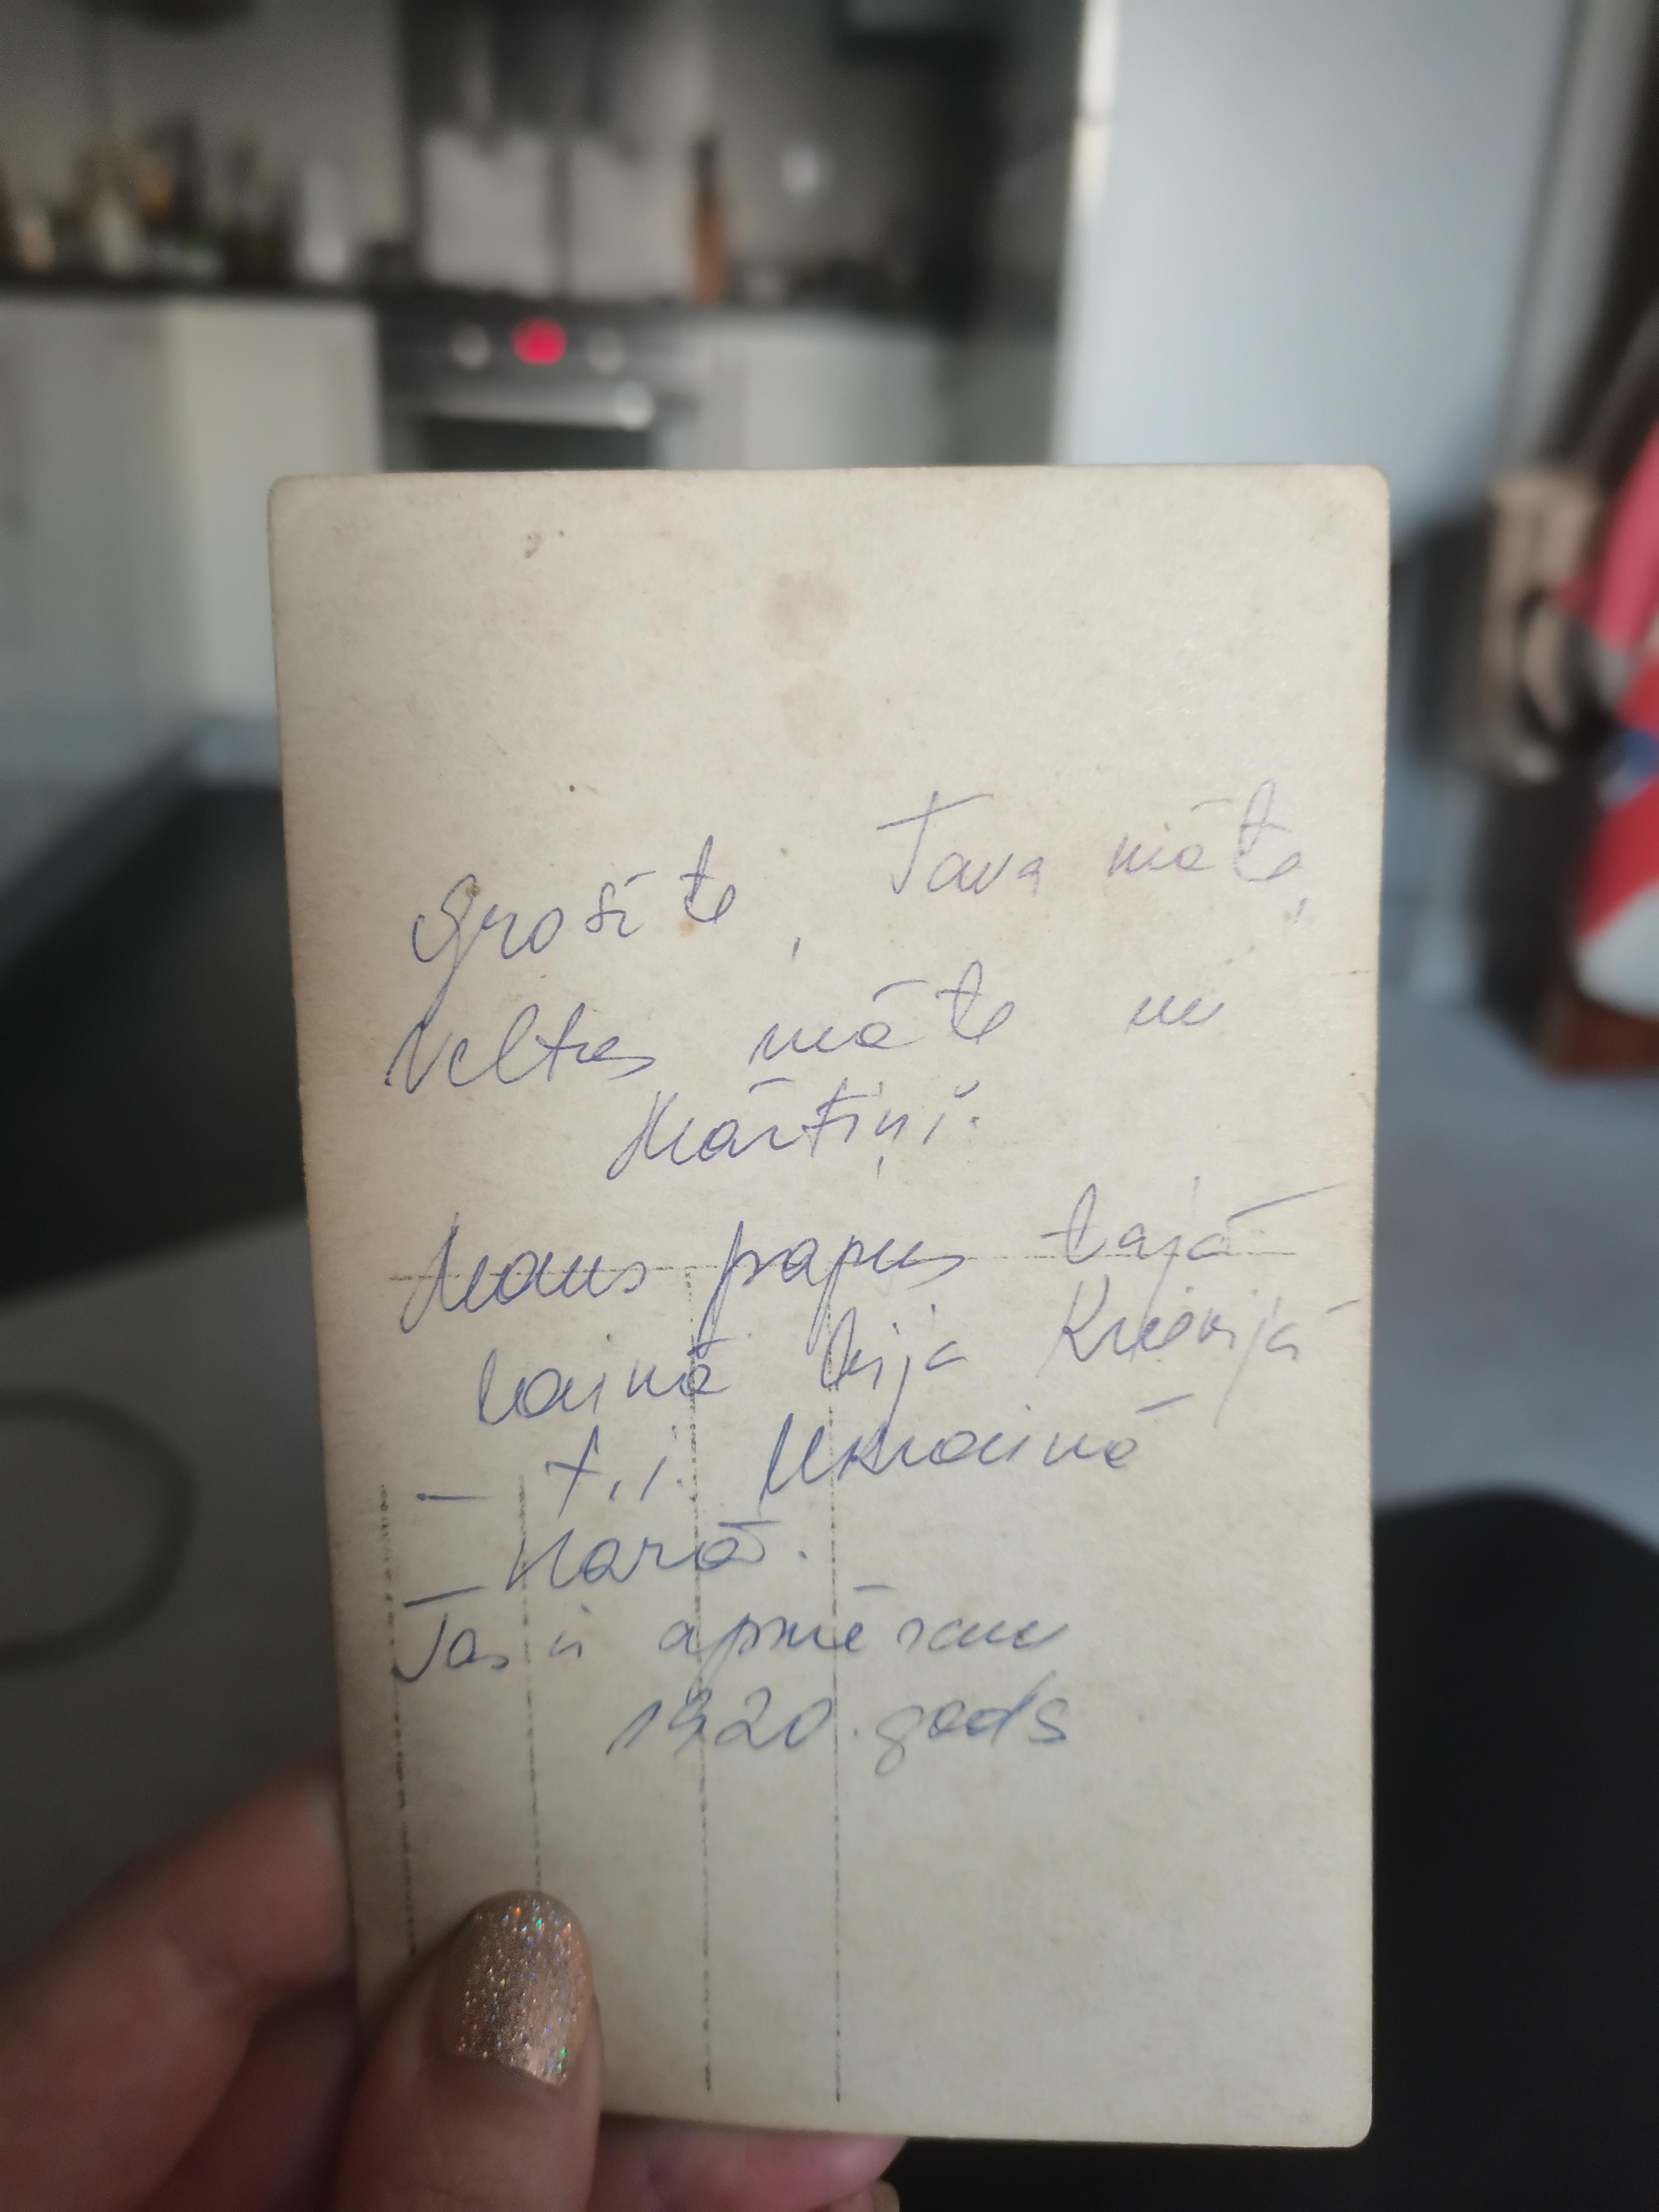 Grosīte, Tava māte,
Veltas māte un
Mārtiņi.
Mans papus tajā
laikā bija Krievijā
– t.i. Ukrainā
Karā.
Tas ir apmēram
1920. gads